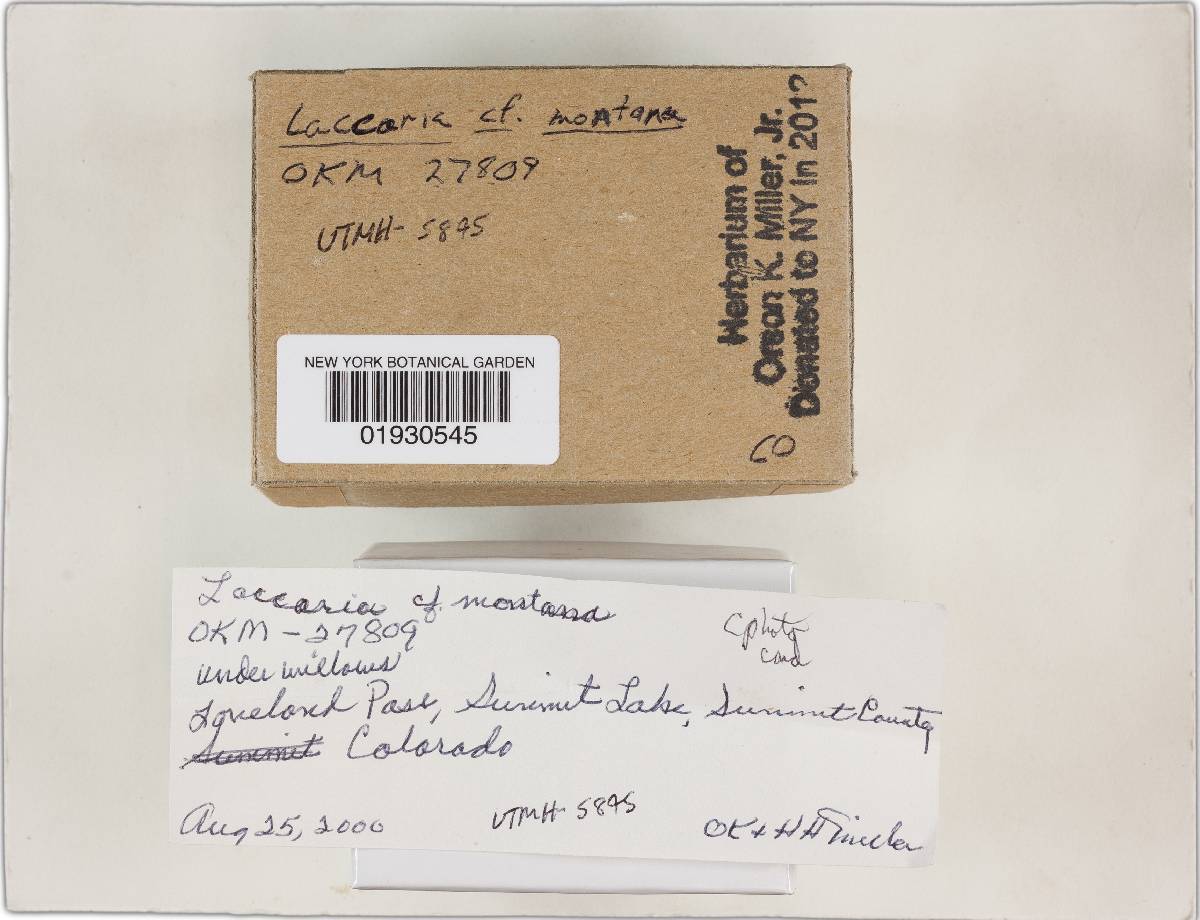 Laccaria cf. montana
OKM 27809
UTMH- 5895
Herbarium of
Orson K. Miller, Jr.
Donated to NY in 2012
NEW YORK BOTANICAL GARDEN
01930545
CO
Laccaria cf montana
OKM - 27809
under willows
c photo
card
Loveland Pass, Summit Lake, Summit County
Summit Colorado
Aug 25, 2000
UTMH- 5895
OK + HH Miller